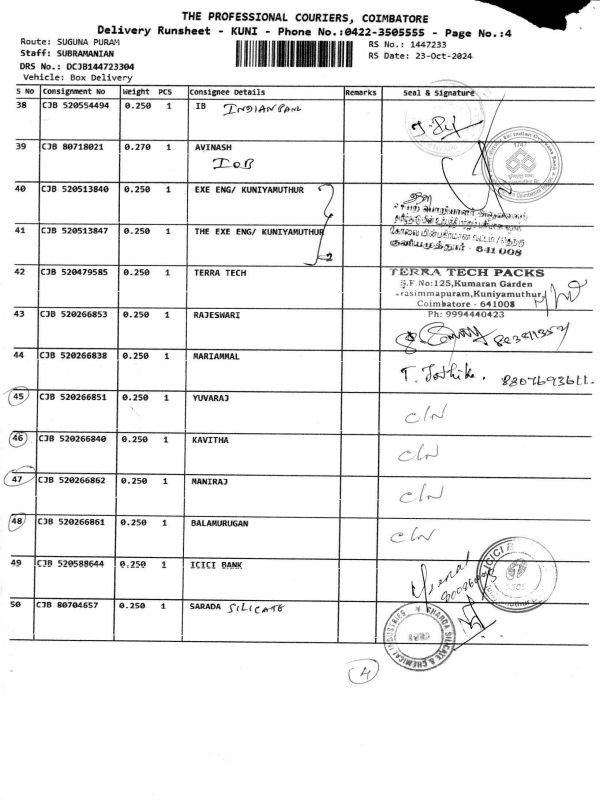 THE PROFESSIONAL COURIERS, COIMBATORE
Delivery Runsheet - KUNI - Phone No.:0422-3505555 - Page No.:4
Route: SUGUNA PURAM
RS No.: 1447233
Staff: SUBRAMANIAN
RS Date: 23-Oct-2024
DRS No.: DCJB144723304
Vehicle: Box Delivery
S No Consignment No Weight PCS Consignee Details Remarks Seal & Signature
38 CJB 520554494 0.250 1 IB INDIANBANK
39 CJB 80718021 0.270 1 AVINASH
IOB
40 CJB 520513840 0.250 1 EXE ENG/ KUNIYAMUTHUR
41 CJB 520513847 0.250 1 THE EXE ENG/ KUNIYAMUTHUR
2
குனியமுத்தூர் - 641 008
42 CJB 520479585 0.250 1 TERRA TECH
TERRA TECH PACKS
S.F.No:125,Kumaran Garden
Narasimmapuram,Kuniyamuthur,
Coimbatore - 641008
Ph: 9994440423
43 CJB 520266853 0.250 1 RAJESWARI
44 CJB 520266838 0.250 1 MARIAMMAL T. Jothika. 8807693611.
45 CJB 520266851 0.250 1 YUVARAJ C/N
46 CJB 520266840 0.250 1 KAVITHA C/N
47 CJB 520266862 0.250 1 MANIRAJ C/N
48 CJB 520266861 0.250 1 BALAMURUGAN C/N
49 CJB 520588644 0.250 1 ICICI BANK
50 CJB 80704657 0.250 1 SARADA SILICATE
SHARDA SILICATE & CHEMICAL INDUSTRIES
4